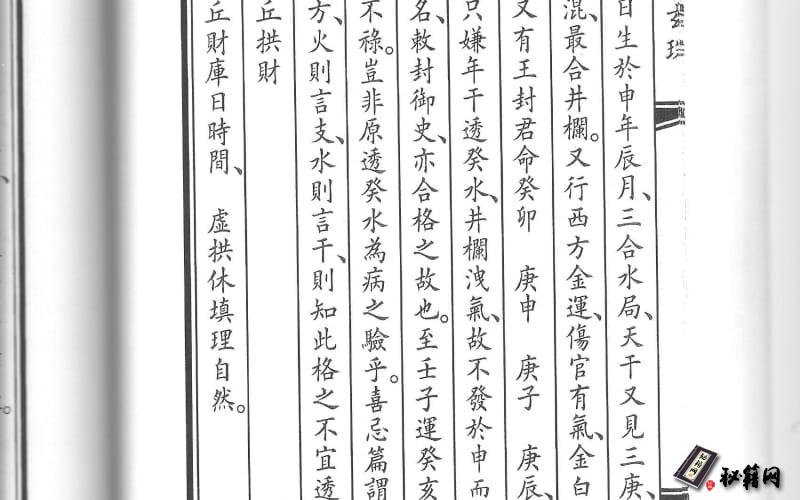 日生於申年辰月、三合水局、天干又見三庚、
混、最合井欄。又行西方金運、傷官有氣、金白
又有王封君命癸卯 庚申 庚子 庚辰、
只嫌年干透癸水、井欄洩氣、故不發於申而
名、敕封御史、亦合格之故也。至壬子運癸亥
不祿。豈非原透癸水為病之驗乎。喜忌篇謂
方、火則言支、水則言干、則知此格之不宜透
丘拱財
丘財庫日時間、 虛拱休填理自然。
秘籍网